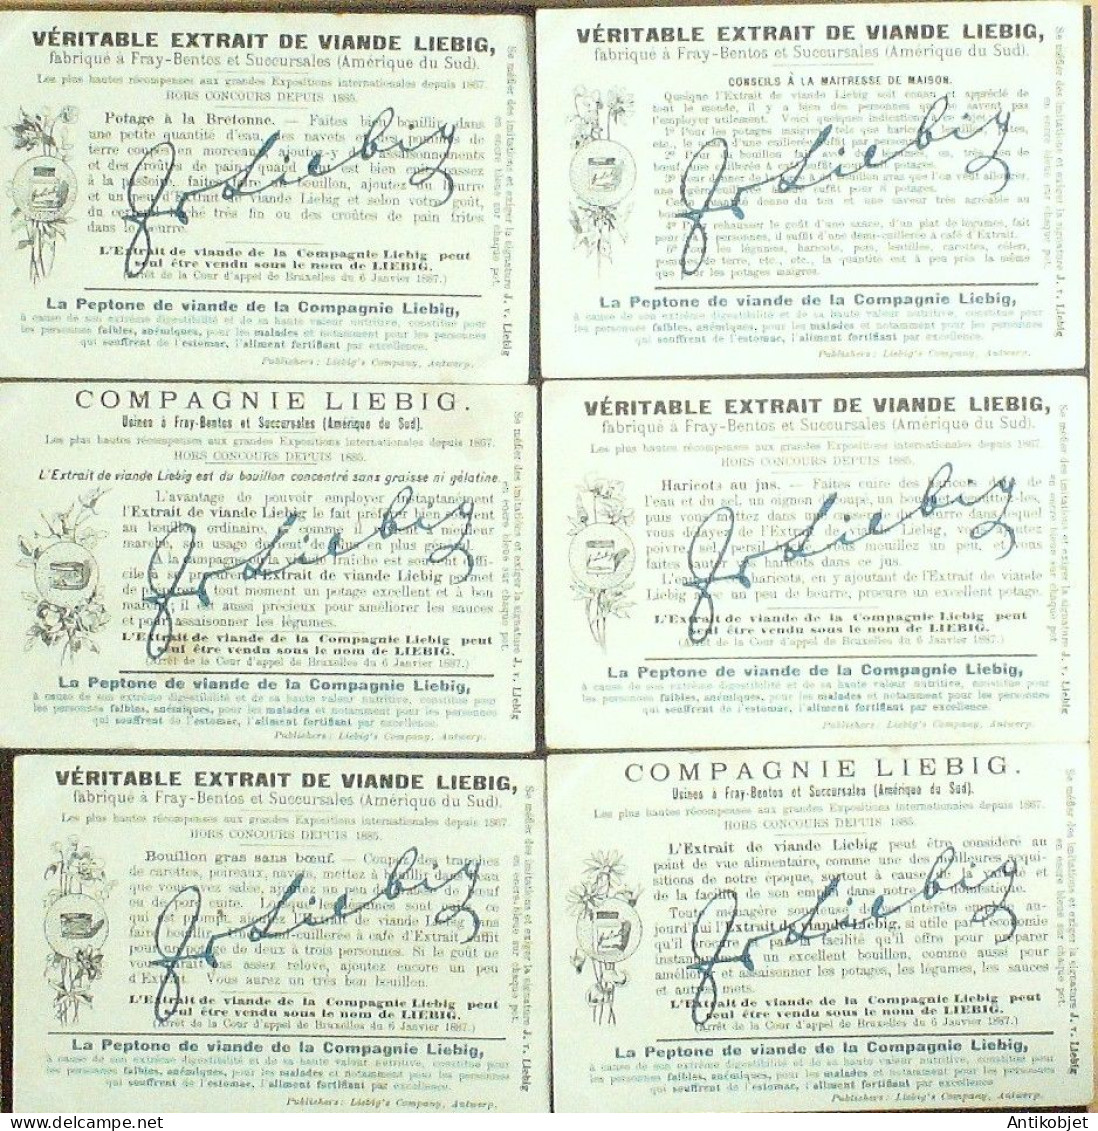 VÉRITABLE EXTRAIT DE VIANDE LIEBIG,
fabriqué à Fray-Bentos et Succursales (Amérique du Sud).
Les plus hautes récompenses aux grandes Expositions internationales depuis 1867.
HORS CONCOURS DEPUIS 1885.
Potage à la Bretonne. — Faites bien bouillir dans
une petite quantité d'eau, des navets et des pommes de
terre coupés en morceaux, ajoutez-y des assaisonnements
et des croûtes de pain; quand tout est bien cuit passez
à la passoire, faites cuire le bouillon, ajoutez du beurre
et un peu d'Extrait de viande Liebig et selon votre goût,
du cerfeuil haché très fin ou des croûtes de pain frites
dans le beurre.
L'Extrait de viande de la Compagnie Liebig peut
seul être vendu sous le nom de LIEBIG.
(Arrêt de la Cour d'appel de Bruxelles du 6 Janvier 1887.)
La Peptone de viande de la Compagnie Liebig,
à cause de son extrême digestibilité et de sa haute valeur nutritive, constitue pour
les personnes faibles, anémiques, pour les malades et notamment pour les personnes
qui souffrent de l'estomac, l'aliment fortifiant par excellence.
Publishers: Liebig's Company, Antwerp.
Se méfier des imitations et exiger la signature J. v. Liebig
en encre bleue sur chaque pot.
J v Liebig
VÉRITABLE EXTRAIT DE VIANDE LIEBIG,
fabriqué à Fray-Bentos et Succursales (Amérique du Sud).
CONSEILS À LA MAITRESSE DE MAISON.
Quoique l'Extrait de viande Liebig soit connu et apprécié de
tout le monde, il y a bien des personnes qui ne savent pas
l'employer utilement. Voici quelques indications à ce sujet:
1º Pour les potages maigres, tels que haricots, lentilles, pâtes,
etc., le quart d'une cuillerée suffit par personne.
2º Pour du bouillon fait avec des os, ou très peu de
bœuf, une cuillerée à café suffit pour potages.
3º Pour donner de la force à du bouillon gras que l'on veut allonger,
une légère cuillerée suffit pour 6 potages.
Cette quantité donne du ton et une saveur très agréable au
bouillon.
4º Pour rehausser le goût d'une sauce, d'un plat de légumes, fait
pour personnes, il suffit d'une demi-cuilleree à café d'Extrait.
5º Pour les légumes, haricots, pois, lentilles, carottes, céleri,
pommes de terre, etc., etc., la quantité est à peu près la même
que pour les potages maigres.
La Peptone de viande de la Compagnie Liebig,
à cause de son extrême digestibilité et de sa haute valeur nutritive, constitue pour
les personnes faibles, anémiques, pour les malades et notamment pour les personnes
qui souffrent de l'estomac, l'aliment fortifiant par excellence.
Publishers: Liebig's Company, Antwerp.
Se méfier des imitations et exiger la signature J. v. Liebig
en encre bleue sur chaque pot.
J v Liebig
COMPAGNIE LIEBIG.
Usines à Fray-Bentos et Succursales (Amérique du Sud).
Les plus hautes récompenses aux grandes Expositions internationales depuis 1867.
HORS CONCOURS DEPUIS 1885.
L'Extrait de viande Liebig est du bouillon concentré sans graisse ni gélatine.
L'avantage de pouvoir employer instantanément
l'Extrait de viande Liebig le fait préférer bien souvent
au bouillon ordinaire, et comme il revient à meilleur
marché, son usage devient de plus en plus général.
À la campagne où la viande fraîche est souvent diffi-
cile à se procurer, l'Extrait de viande Liebig permet
de préparer à tout moment un potage excellent et à bon
marché; il est aussi précieux pour améliorer les sauces
et pour assaisonner les légumes.
L'Extrait de viande de la Compagnie Liebig peut
seul être vendu sous le nom de LIEBIG.
(Arrêt de la Cour d'appel de Bruxelles du 6 Janvier 1887.)
La Peptone de viande de la Compagnie Liebig,
à cause de son extrême digestibilité et de sa haute valeur nutritive, constitue pour
les personnes faibles, anémiques, pour les malades et notamment pour les personnes
qui souffrent de l'estomac, l'aliment fortifiant par excellence.
Publishers: Liebig's Company, Antwerp.
Se méfier des imitations et exiger la signature J. v. Liebig
en encre bleue sur chaque pot.
J v Liebig
VÉRITABLE EXTRAIT DE VIANDE LIEBIG,
fabriqué à Fray-Bentos et Succursales (Amérique du Sud).
Les plus hautes récompenses aux grandes Expositions internationales depuis 1867.
HORS CONCOURS DEPUIS 1885.
Haricots au jus. — Faites cuire des haricots dans de
l'eau et du sel, un oignon découpé, un bouquet, égouttez-les,
puis vous mettez dans une casserole du beurre dans lequel
vous délayez de l'Extrait de viande Liebig, vous ajoutez
poivre, sel, persil, vous mouillez un peu, et vous
faites sauter les haricots dans ce jus.
L'eau des haricots, en y ajoutant de l'Extrait de viande
Liebig avec un peu de beurre, procure un excellent potage.
L'Extrait de viande de la Compagnie Liebig peut
seul être vendu sous le nom de LIEBIG.
(Arrêt de la Cour d'appel de Bruxelles du 6 Janvier 1887.)
La Peptone de viande de la Compagnie Liebig,
à cause de son extrême digestibilité et de sa haute valeur nutritive, constitue pour
les personnes faibles, anémiques, pour les malades et notamment pour les personnes
qui souffrent de l'estomac, l'aliment fortifiant par excellence.
Publishers: Liebig's Company, Antwerp.
Se méfier des imitations et exiger la signature J. v. Liebig
en encre bleue sur chaque pot.
J v Liebig
VÉRITABLE EXTRAIT DE VIANDE LIEBIG,
fabriqué à Fray-Bentos et Succursales (Amérique du Sud).
Les plus hautes récompenses aux grandes Expositions internationales depuis 1867.
HORS CONCOURS DEPUIS 1885.
Bouillon gras sans bœuf. — Coupez des tranches
de carottes, poireaux, navets, mettez à bouillir dans l'eau
que vous avez salée, ajoutez un peu de graisse de bœuf
ou de porc cuite. Lorsque les légumes sont cuits, ce
qui est prompt, ajoutez l'Extrait de viande Liebig sans
faire bouillir. Une demi-cuillerée à café d'Extrait suffit
pour un potage de deux à trois personnes. Si le goût ne
vous paraît pas assez relevé, ajoutez encore un peu
d'Extrait. Vous aurez un très bon bouillon.
L'Extrait de viande de la Compagnie Liebig peut
seul être vendu sous le nom de LIEBIG.
(Arrêt de la Cour d'appel de Bruxelles du 6 Janvier 1887.)
La Peptone de viande de la Compagnie Liebig,
à cause de son extrême digestibilité et de sa haute valeur nutritive, constitue pour
les personnes faibles, anémiques, pour les malades et notamment pour les personnes
qui souffrent de l'estomac, l'aliment fortifiant par excellence.
Publishers: Liebig's Company, Antwerp.
Se méfier des imitations et exiger la signature J. v. Liebig
en encre bleue sur chaque pot.
J v Liebig
COMPAGNIE LIEBIG.
Usines à Fray-Bentos et Succursales (Amérique du Sud).
Les plus hautes récompenses aux grandes Expositions internationales depuis 1867.
HORS CONCOURS DEPUIS 1885.
L'Extrait de viande Liebig peut être considéré au
point de vue alimentaire, comme une des meilleures acqui-
sitions de notre époque, surtout à cause de la variété et
de la facilité de son emploi dans notre vie domestique.
Toute ménagère soucieuse de ses intérêts emploie au-
jourd'hui l'Extrait de viande Liebig, si utile par l'économie
qu'il procure et par la facilité qu'il offre pour préparer
instantanément un excellent bouillon, comme aussi pour
améliorer et assaisonner les potages, les légumes, les sauces
et autres mets.
L'Extrait de viande de la Compagnie Liebig peut
seul être vendu sous le nom de LIEBIG.
(Arrêt de la Cour d'appel de Bruxelles du 6 Janvier 1887.)
La Peptone de viande de la Compagnie Liebig,
à cause de son extrême digestibilité et de sa haute valeur nutritive, constitue pour
les personnes faibles, anémiques, pour les malades et notamment pour les personnes
qui souffrent de l'estomac, l'aliment fortifiant par excellence
Publishers: Liebig's Company, Antwerp.
Se méfier des imitations et exiger la signature J. v. Liebig
en encre bleue sur chaque pot.
J v Liebig
© Antikobjet